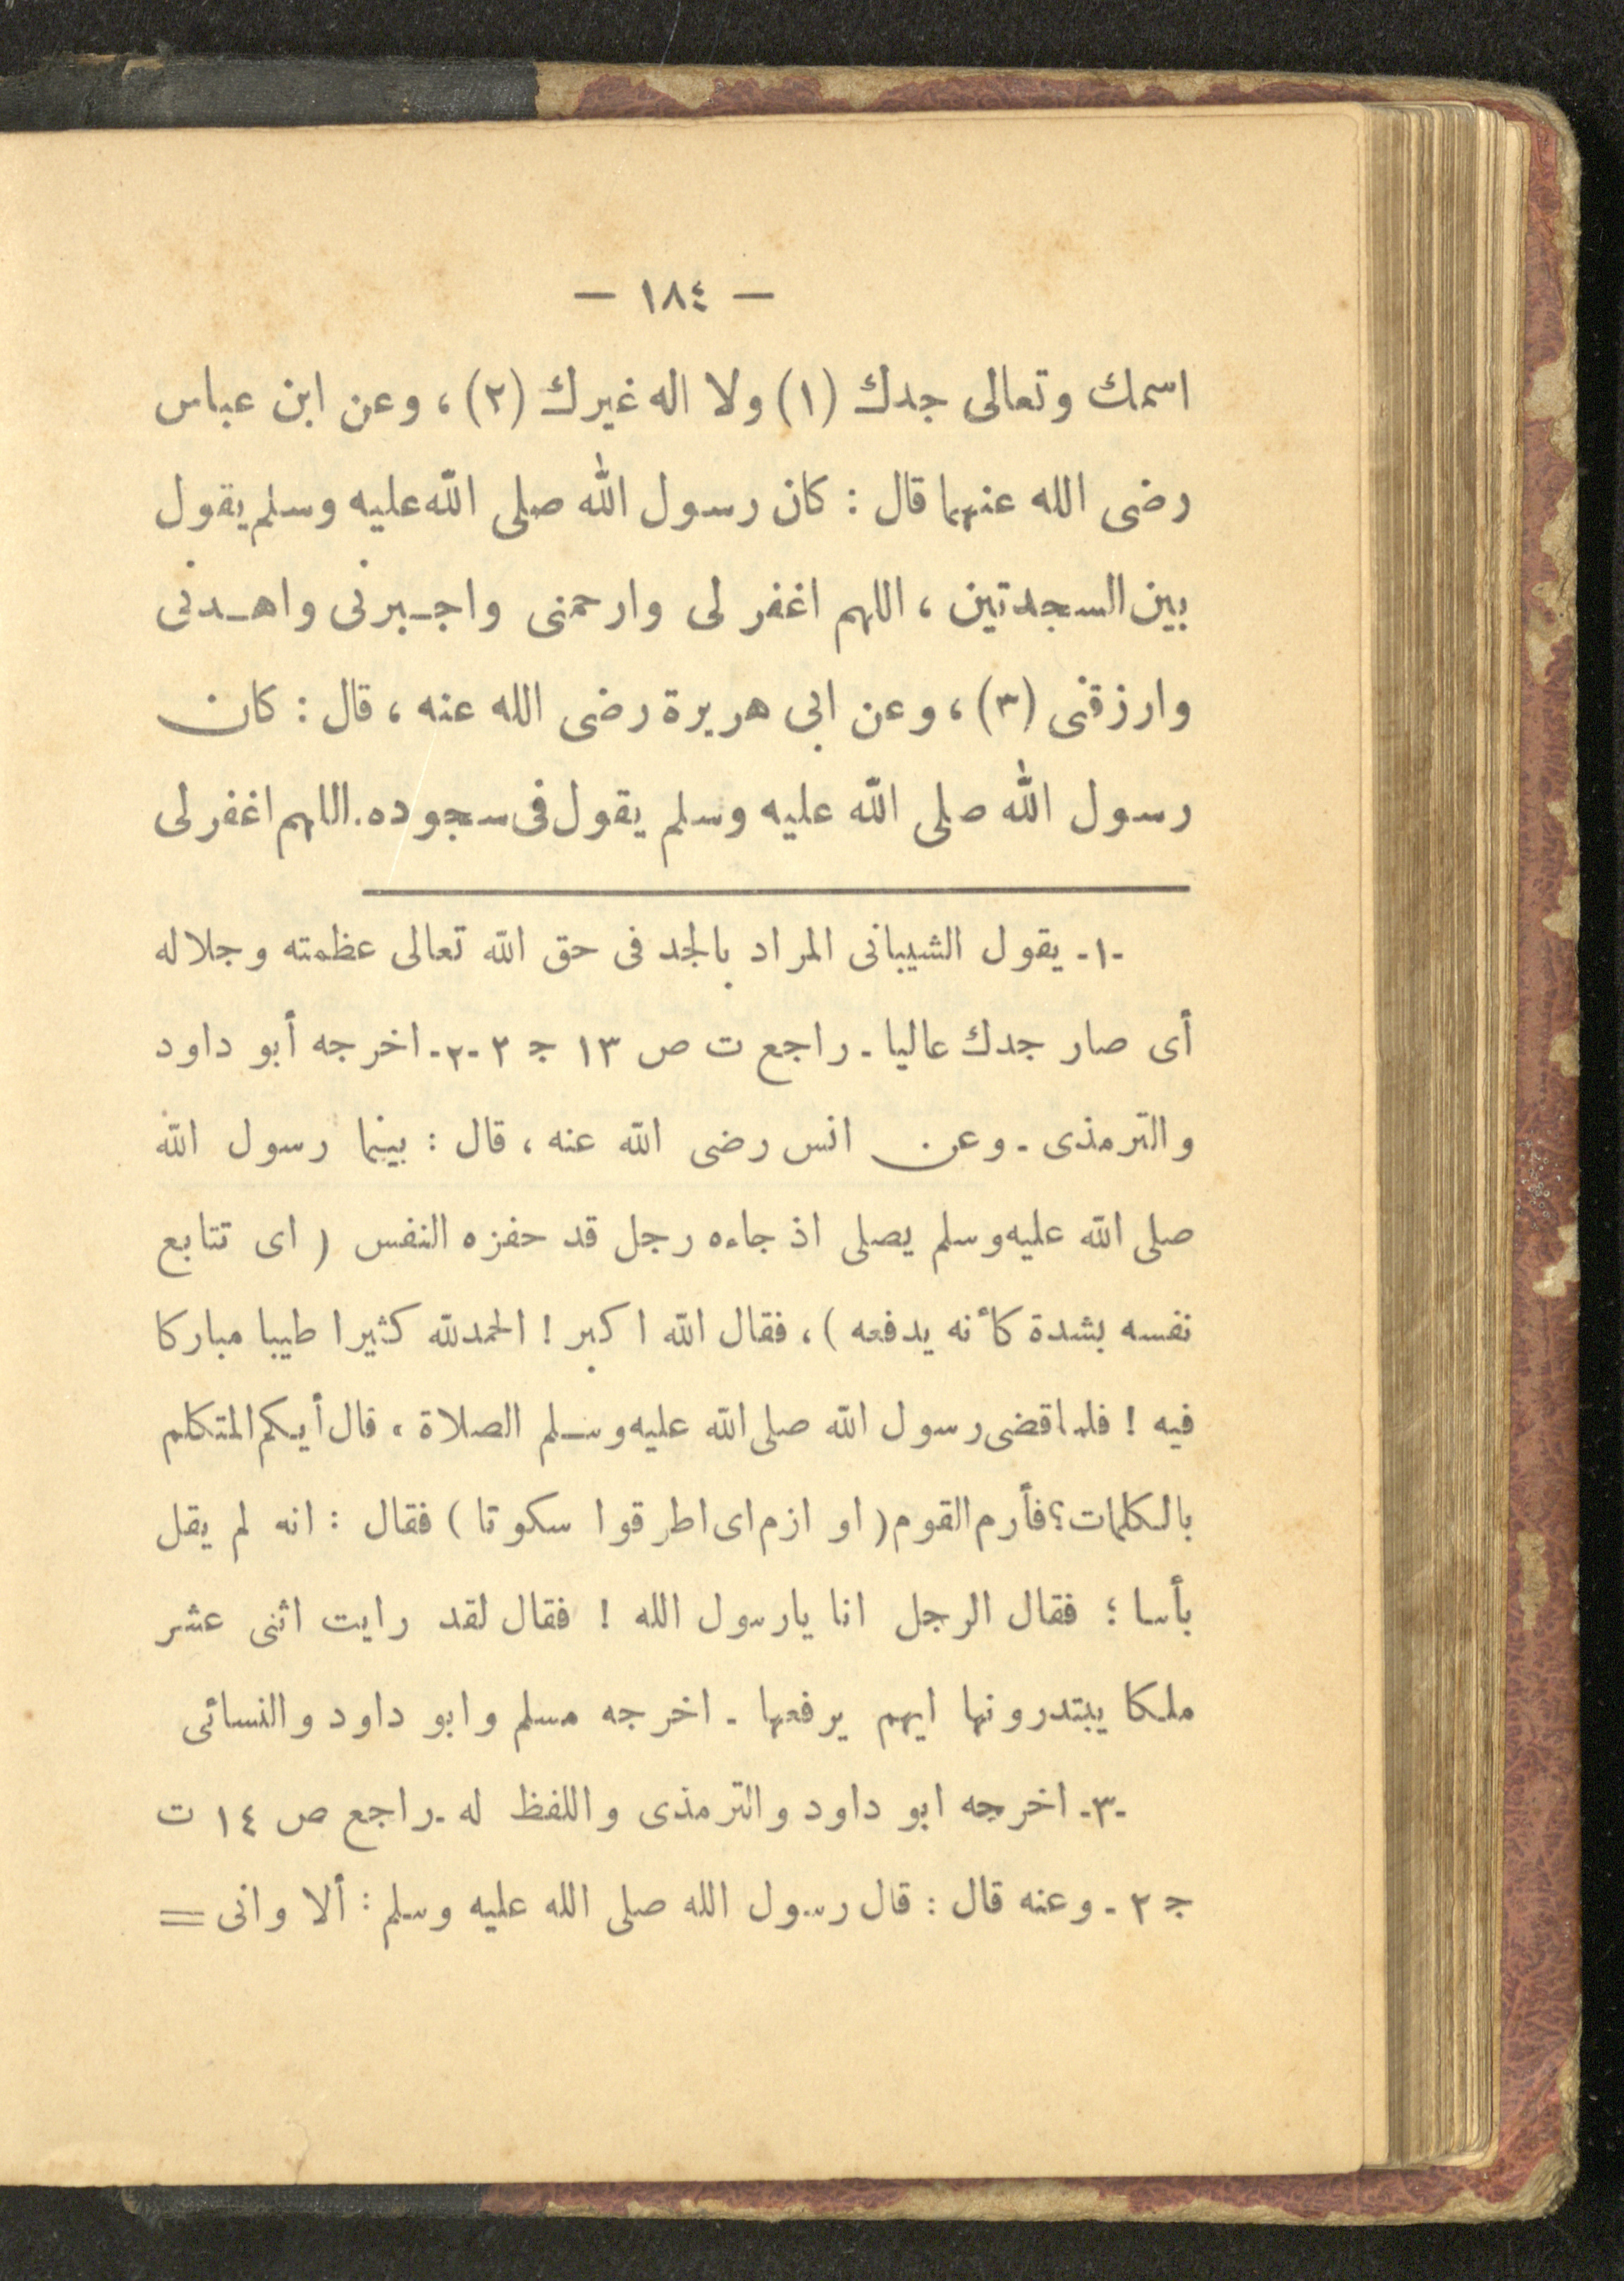 — ١٨٤ —
اسمك وتعالى جدك (١) ولا اله غيرك (٢) ، وعن ابن عباس
رضى الله عنهما قال : كان رسول الله صلى الله عليه وسلم يقول
بين السجدتين ، اللهم اغفر لى وارحمنى واجـبرنى واهـدنى
وارزقنى (٣) ، وعن ابى هريرة رضى الله عنه ، قال : كان
رسول الله صلى الله عليه وسلم يقول فى سجوده . اللهم اغفر لى
-١- يقول الشيبانى المراد بالجد فى حق الله تعالى عظمته وجلاله
أى صار جدك عاليا - راجع ت ص ١٣ جـ ٢ -٢- اخرجه أبو داود
والترمذى - وعن انس رضى الله عنه ، قال : بينما رسول الله
صلى الله عليه وسلم يصلى اذ جاءه رجل قد حفزه النفس ( اى تتابع
نفسه بشدة كأنه يدفعه ) ، فقال الله اكبر ! الحمدلله كثيرا طيبا مباركا
فيه ! فلما قضى رسول الله صلى الله عليه وسلم الصلاة ، قال أيكم المتكلم
بالكلمات ؟ فأرم القوم ( او ازم اى اطرقوا سكوتا ) فقال : انه لم يقل
بأسا ؛ فقال الرجل انا يارسول الله ! فقال لقد رايت اثنى عشر
ملكا يبتدرونها ايهم يرفعها - اخرجه مسلم وابو داود والنسائى
-٣- اخرجه ابو داود والترمذى واللفظ له - راجع ص ١٤ ت
جـ ٢ - وعنه قال : قال رسول الله صلى الله عليه وسلم : ألا وانى =